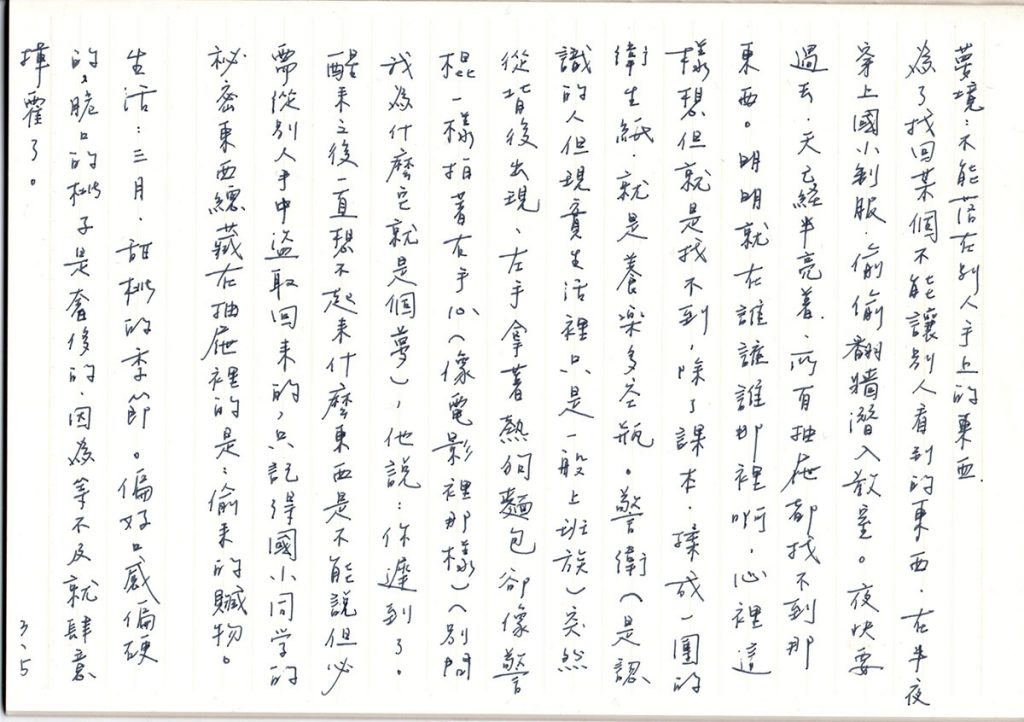 夢境：不能落在別人手上的東西.
為了找回某個不能讓別人看到的東西．在半夜
穿上國小制服．偷偷翻牆潛入教室。夜快要
過去．天已經半亮著．所有抽屜都找不到那
東西。明明就在誰誰誰那裡啊．心裡這
樣想但就是找不到．除了課本．揉成一團的
衛生紙．就是養樂多空瓶。警衛（是認
識的人但現實生活裡只是一般上班族）突然
從背後出現、左手拿著熱狗麵包卻像警
棍一樣拍著右手心（像電影裡那樣）（別問
我為什麼它就是個夢），他說：你遲到了。
醒來之後一直想不起來什麼東西是不能說但必
需從別人手中盜取回來的，只記得國小同学的
祕密東西總藏在抽屜裡的是：偷來的贓物。
生活：三月．甜桃的季節。偏好口感偏硬
的，脆口的桃子是奢侈的．因為等不及就肆意
揮霍了。
3.5